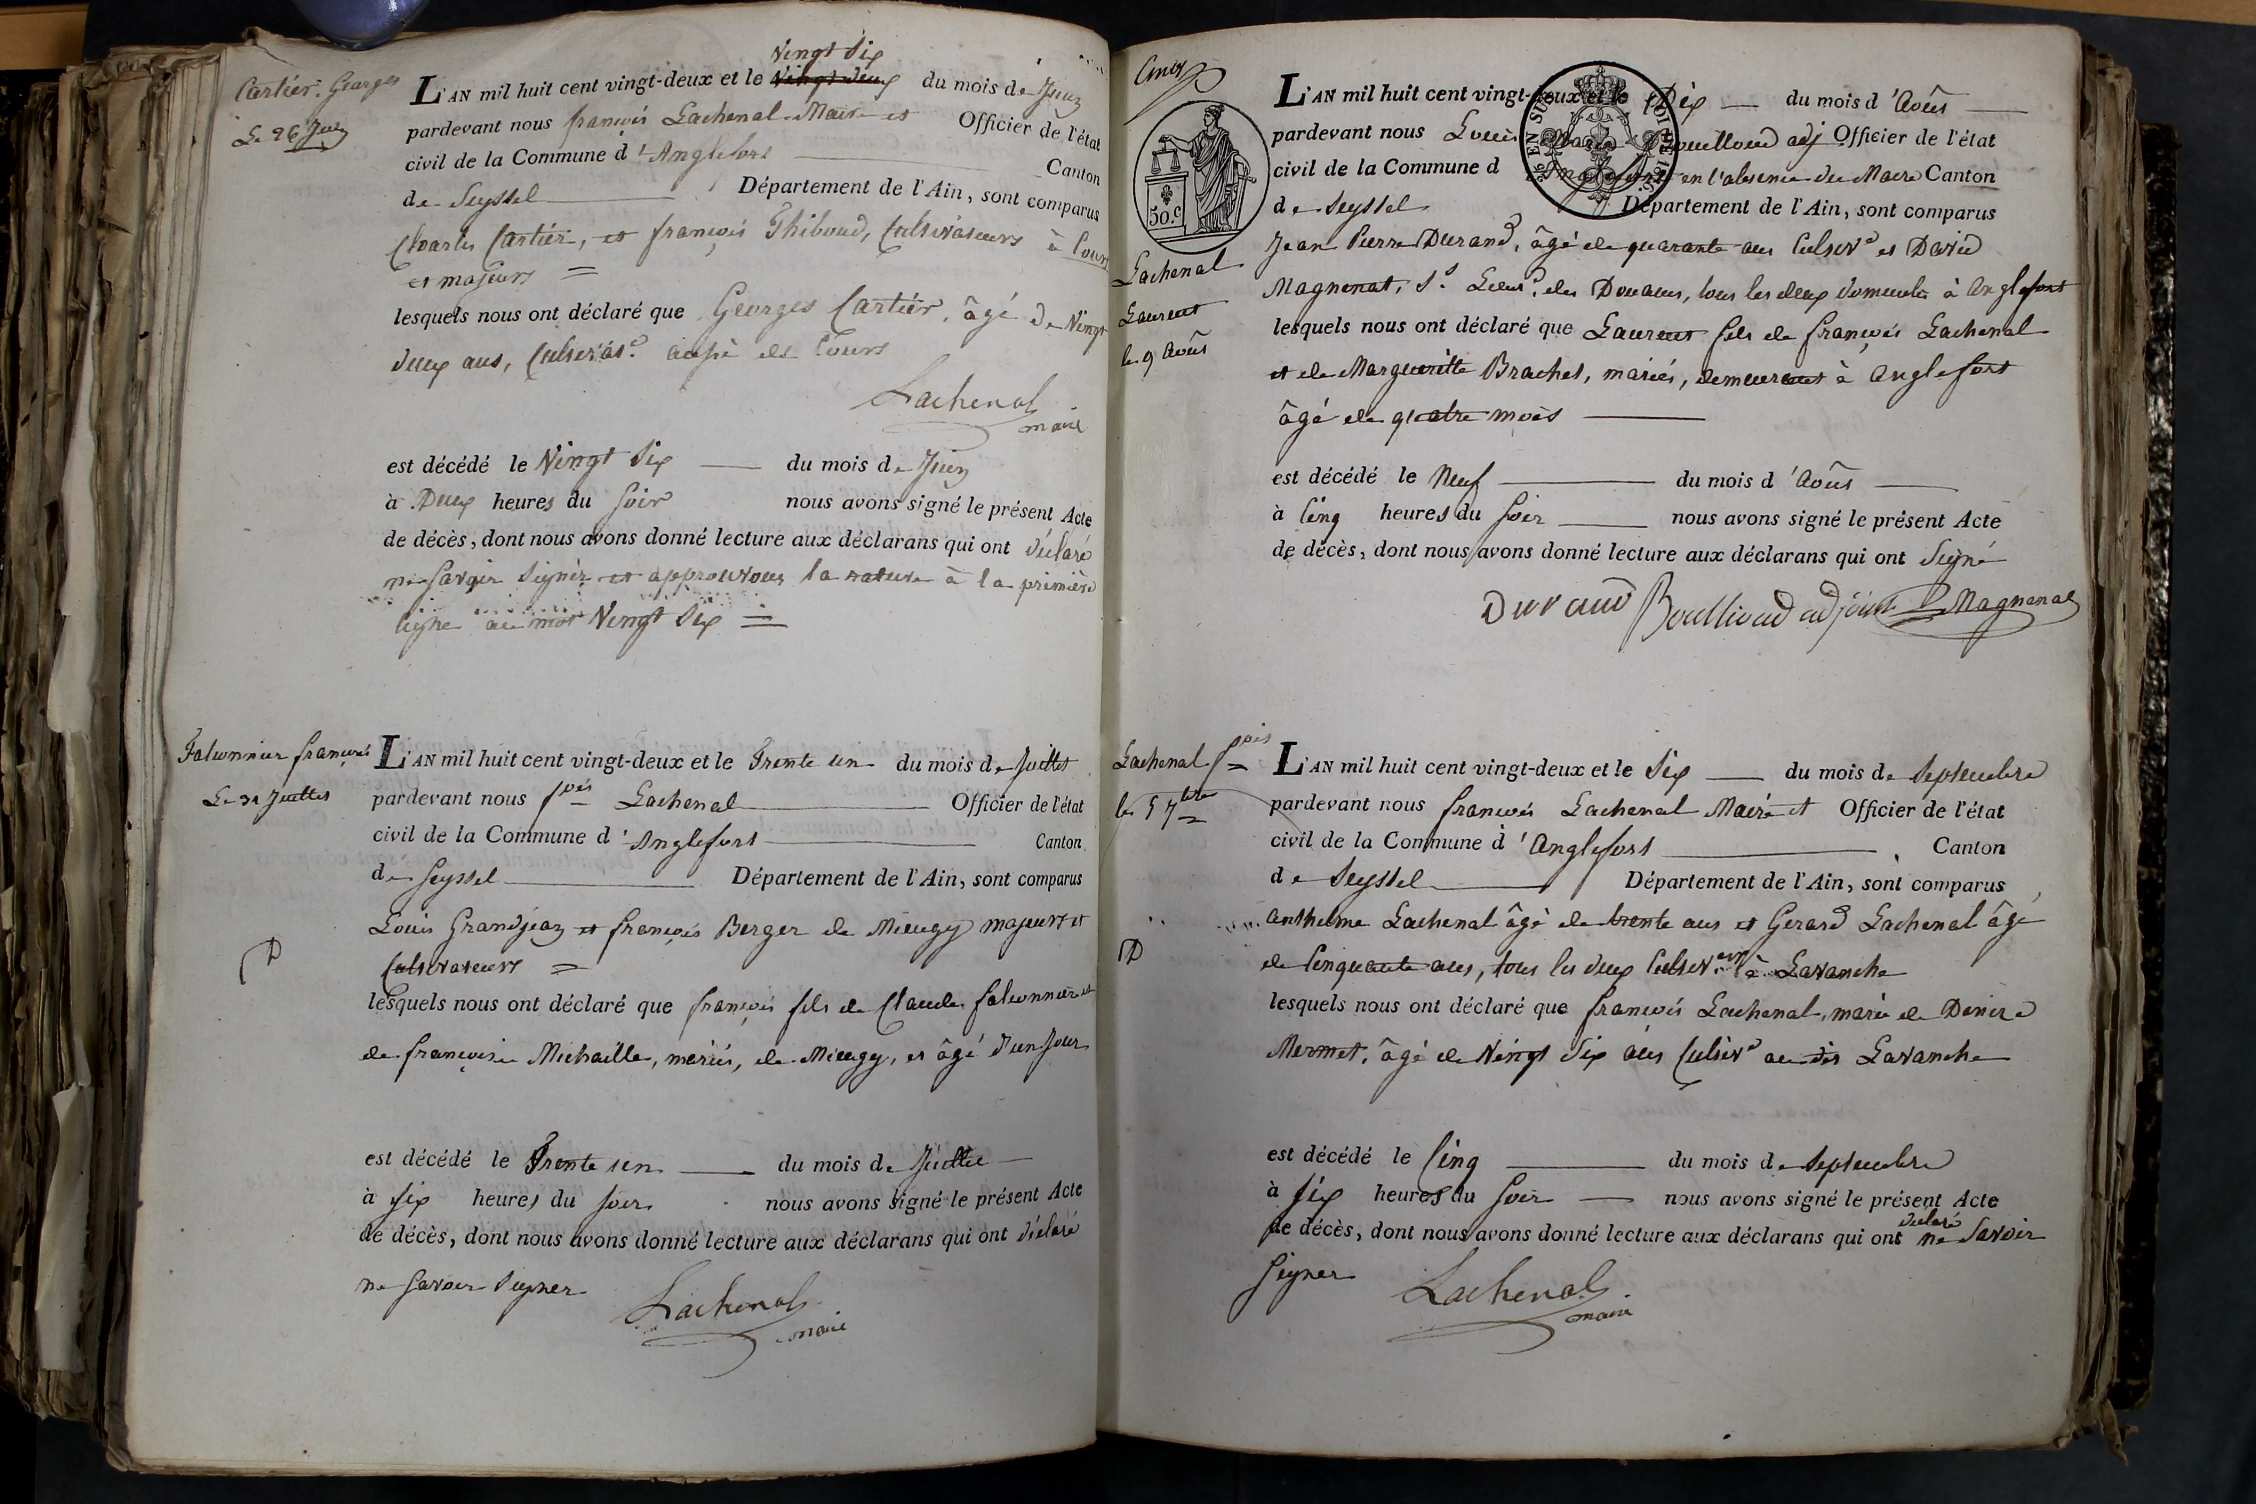 Cartier Georges
Le 26 Juin
L'AN mil huit cent vingt-deux et le Vingt Six du mois de Juin
pardevant nous françois Lachenal Maire et Officier de l'état
civil de la Commune d'Anglefort Canton
de Seyssel Département de l'Ain, sont comparus
Charles Cartier, et françois Thiboud, Cultivateurs à
et majeurs =
lesquels nous ont déclaré que Georges Cartier, âgé de Vingt
deux ans, Cultivat.r aussi de
Lachenal
maire
est décédé le Vingt Six du mois de Juin
à Deux heures du Soir nous avons signé le présent Acte
de décès, dont nous avons donné lecture aux déclarans qui ont déclaré
ne Savoir Signer et approuvons la rature à la première
ligne au mot Vingt Six =
falconnier françois
Le 31 Juillet
L'AN mil huit cent vingt-deux et le Trente un du mois de Juillet
pardevant nous f.çois Lachenal Officier de l'état
civil de la Commune d'Anglefort Canton
de Seyssel Département de l'Ain, sont comparus
Louis Grandjean et françois Berger de Mieugy majeurs et
Cultivateurs =
lesquels nous ont déclaré que françois fils de Claude falconnier et
de françoise Michaille, mariés, de Mieugy, et âgé d'un Jour
est décédé le Trente un du mois de Juillet
à Six heures du Soir nous avons signé le présent Acte
de décès, dont nous avons donné lecture aux déclarans qui ont déclaré
ne Savoir Signer
Lachenal
maire
Cinq
50.c
Lachenal
Laurent
le 9 Août
L'AN mil huit cent vingt-deux et le Dix du mois d'Août
pardevant nous Louis Marie Bouilloud adj Officier de l'état
civil de la Commune d'Anglefort en l'absence du Maire Canton
de Seyssel Département de l'Ain, sont comparus
Jean Pierre Durand, âgé de quarante ans Cultiv.r et David
Magnenat, S.s Lieut. des Douanes, tous les deux domiciliés à Anglefort
lesquels nous ont déclaré que Laurent fils de françois Lachenal
et de Margueritte Brachet, mariés, demeurant à Anglefort
âgé de quatre mois
est décédé le Neuf du mois d'Août
à Cinq heures du Soir nous avons signé le présent Acte
de décès, dont nous avons donné lecture aux déclarans qui ont Signé
Durand Bouilloud adjoint D Magnenat
Lachenal f.çois
le 5 7.bre
L'AN mil huit cent vingt-deux et le Six du mois de Septembre
pardevant nous françois Lachenal Maire et Officier de l'état
civil de la Commune d'Anglefort Canton
de Seyssel Département de l'Ain, sont comparus
Anthelme Lachenal âgé de trente ans et Gerard Lachenal âgé
de Cinquante ans, tous les deux Cultiv.eurs à Lavanche
lesquels nous ont déclaré que françois Lachenal, marié de Denise
Mermet, âgé de Vingt Six ans Cultiv.r au dit Lavanche
est décédé le Cinq du mois de Septembre
à Six heures du Soir nous avons signé le présent Acte
de décès, dont nous avons donné lecture aux déclarans qui ont déclaré ne Savoir
Signer
Lachenal
maire